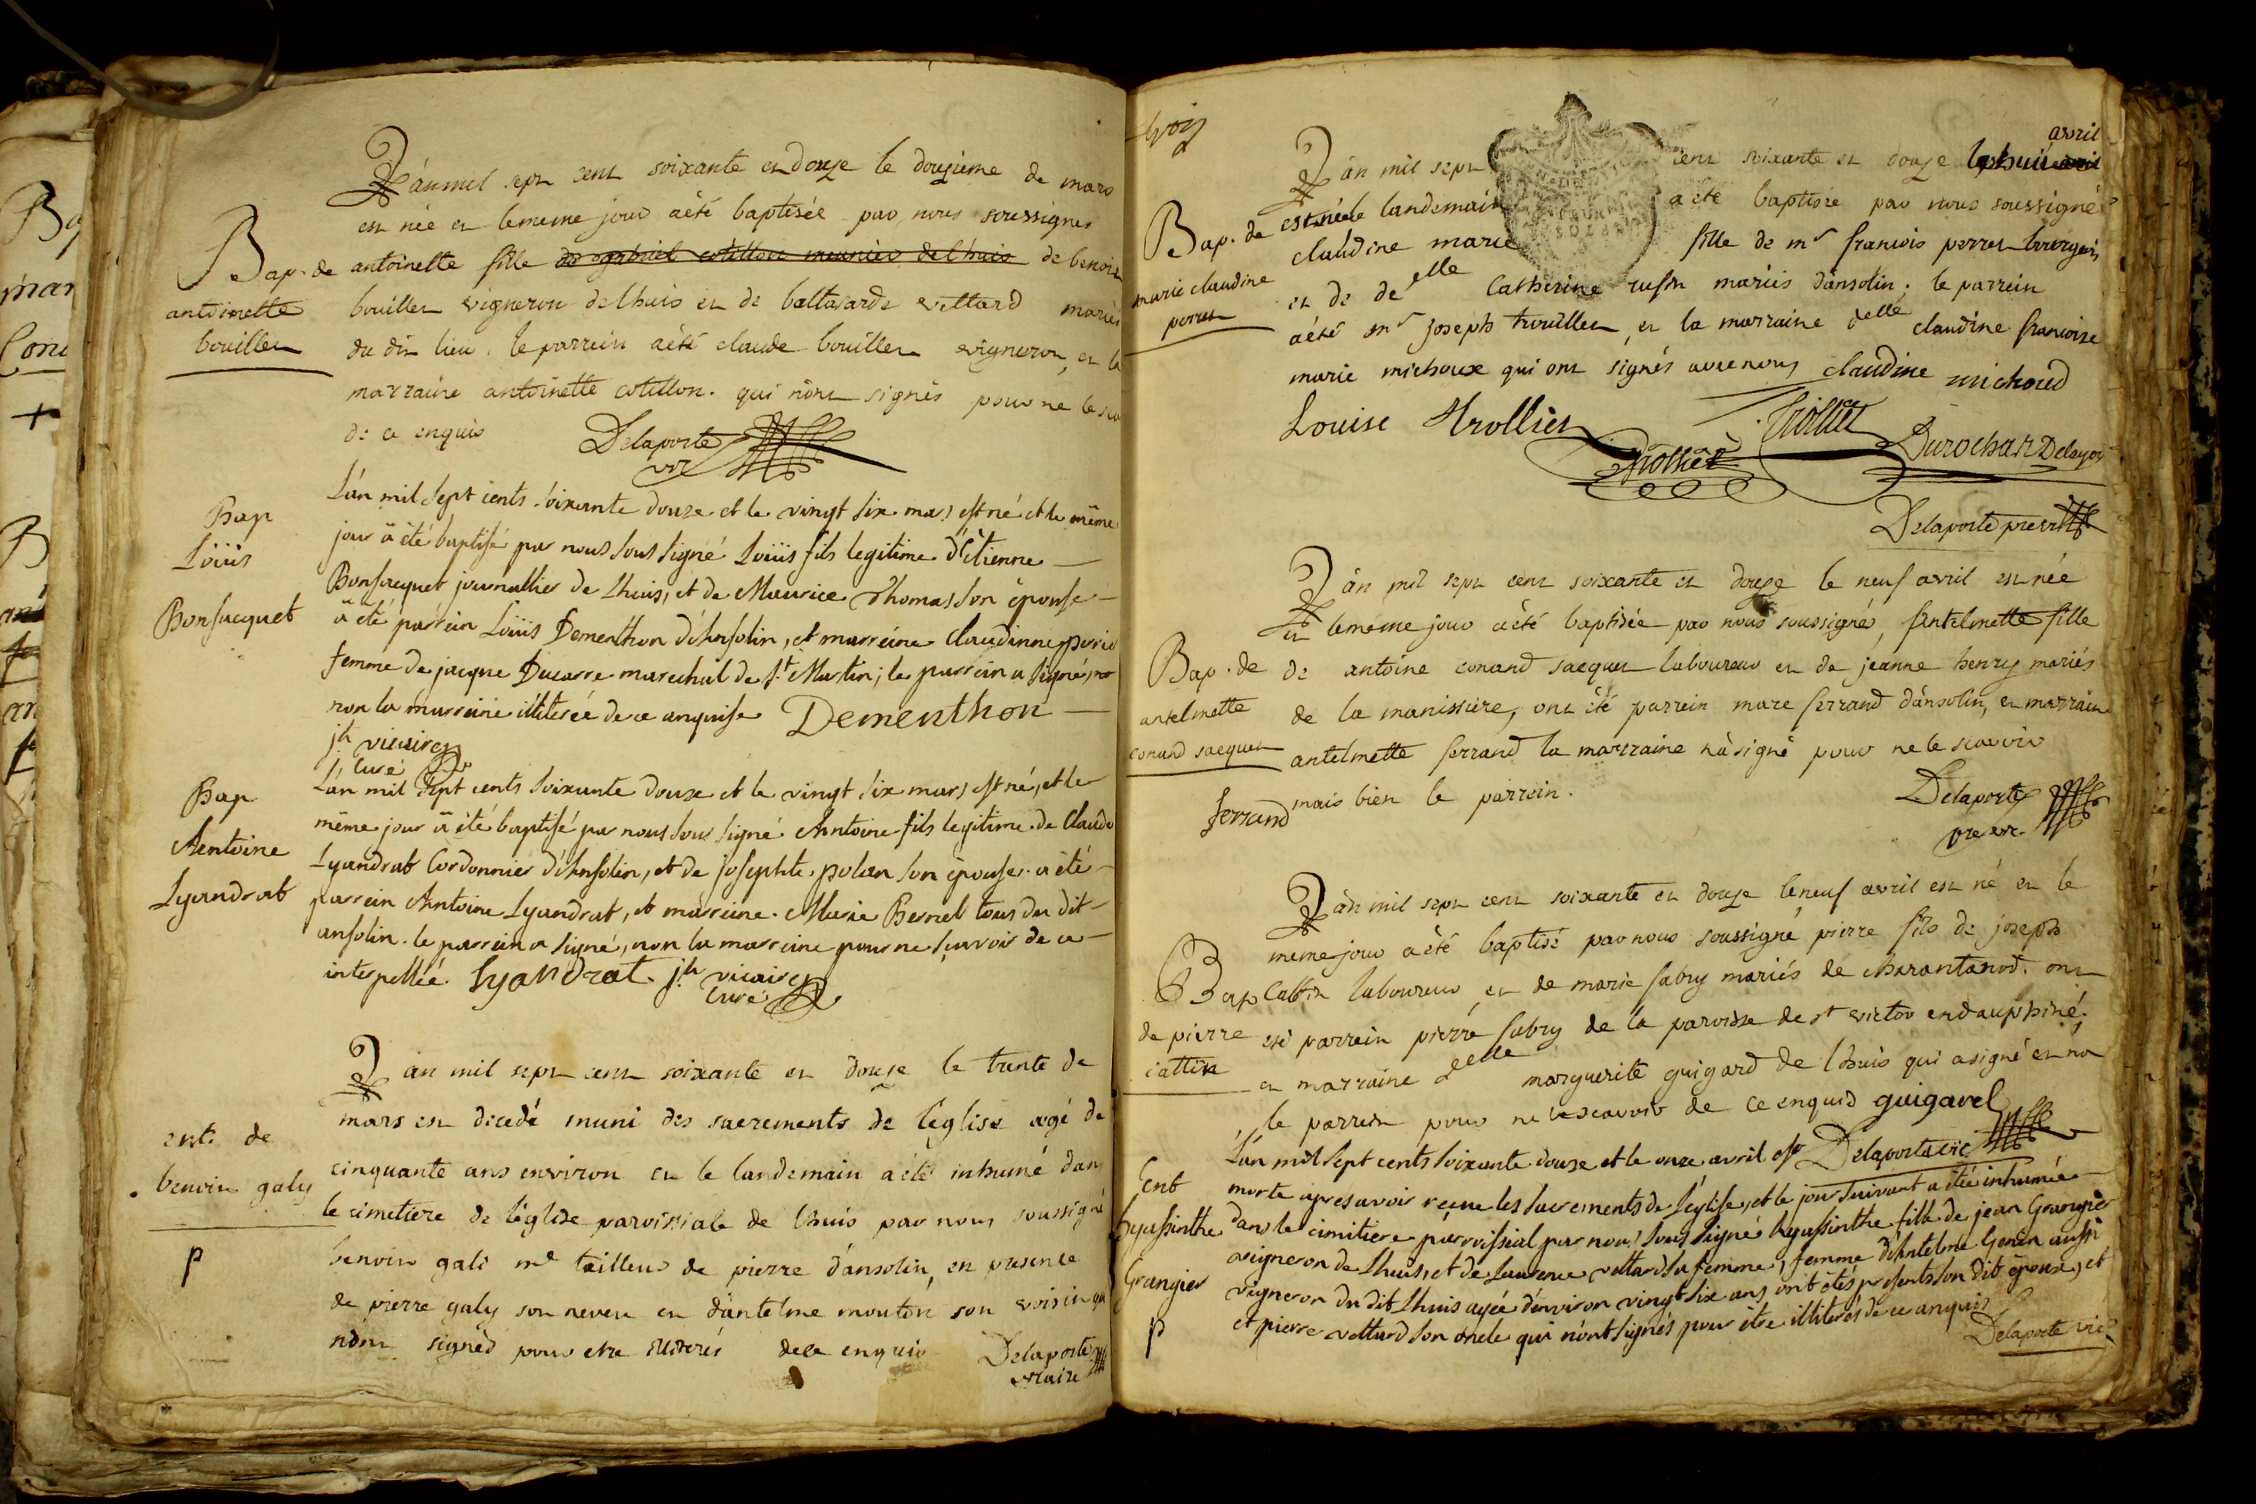 L'an mil sept cent soixante et douze le douzieme de mars
est née et le meme jour a été baptisée par nous soussignes
Bap. de
antoinette
bouillet
antoinette fille de gabriel cotillon meunier de lhuis de benoit
bouillet vigneron de lhuis et de baltazarde vettard mariés
du dit lieu. le parrein a été claude bouillet vigneron, et la
marraine antoinette cotillon. qui n'ont signés pour ne le
de ce enquis Delaporte
vic
Bap
Loüis
Bonfacquet
L'an mil sept cents soixante douze et le vingt six mars est né et le même
jour a été baptisé par nous sous signé Loüis fils legitime d'étienne
Bonfacquet journallier de Lhuis, et de Maurice Thomas son épouse
a été parrein Loüis Dementhon d'Ansolin, et marreine Claudinne
femme de jacque Ducarre marechal de St Martin; le parrein a signé,
non la marreine illiterée de ce anquise Dementhon
jh vicaire
curé
Bap
Antoine
Lyandrat
L'an mil sept cents soixante douze et le vingt six mars est né, et le
même jour a été baptisé par nous sous signé Antoine fils legitime de Claude
Lyandrat Cordonnier d'Ansolin, et de josephte polan son épouse. a été
parrein Antoine Lyandrat, et marreine Marie Bernel tous du dit
ansolin. le parrein a signé, non la marreine pour ne sçavoir de ce
interpellée. Lyandrat jh vicaire
curé
L'an mil sept cent soixante et douze le trente de
ent. de
benoin galy
p
mars est decedé muni des sacrements de l'église agé de
cinquante ans environ et le landemain a été inhumé dans
le cimetiere de l'église paroissiale de lhuis par nous soussigné
benoin gali me tailleur de pierre d'ansolin, en presence
de pierre galy son neveu et d'antelme mouton son voisin qui
n'ont signés pour etre illiterés de ce enquis Delaporte
vicaire
L'an mil sept cent soixante et douze le huit avril
avril
Bap. de
marie claudine
perret
est née le landemain a été baptisée par nous soussigné
claudine marie fille de mr francois perret bourgeois
et de delle Catherine mariés d'ansolin; le parrein
a été mr joseph trouillet, et la marraine delle claudine francoise
marie michoux qui ont signés avec nous claudine michoud
Louise Trolliet Trolliet
Trolliet Durochat Delaporte
Delaporte
L'an mil sept cent soixante et douze le neuf avril est née
et le meme jour a été baptisée par nous soussigné, antelmette fille
Bap. de
antelmette
conand jacquet
de antoine conand jacquet laboureur et de jeanne henry mariés
de la manissiere, ont été parrein marc ferrand d'ansolin, et marraine
antelmette ferrand la marraine n'a signé pour ne le scavoir
mais bien le parrein.
ferrand
Delaporte
L'an mil sept cent soixante et douze le neuf avril est né et le
meme jour a été baptisé par nous soussigné pierre fils de joseph
Bap
de pierre
cattin
Cattin laboureur et de marie fabry mariés de charantanod. ont
été parrein pierre fabry de la paroisse de st victor en dauphiné;
et marraine delle marguerite guigard de lhuis qui a signé et non
le parrein pour ne le scavoir de ce enquis guigard
Delaporte vic
Ent
hyassinthe
Grangier
p
L'an mil sept cents soixante douze et le onze avril est
morte apres avoir reçue les sacrements de l'église, et le jour suivant a été inhumée
dans le cimitiere parroissial par nous sous signé hyassinthe fille de jean Grangier
vigneron de Lhuis, et de Laurence vettard sa femme, femme d'Antelme Genin aussi
vigneron du dit Lhuis agée d'environ vingt six ans, ont étés presents son dit époux, et
et pierre vettard son oncle qui n'ont signés pour être illiterés de ce anquis
Delaporte vic